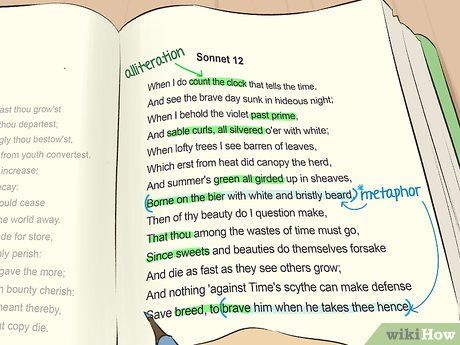 ast thou grow'st
thou departest;
gly bestow'st,
from youth convertest.
increase;
cay:
ould cease
he world away.
de for store,
ly perish:
gave the more;
bounty cherish:
meant thereby,
t copy die.
alliteration
Sonnet 12
When I do count the clock that tells the time,
And see the brave day sunk in hideous night;
When I behold the violet past prime,
And sable curls, all silvered o'er with white;
When lofty trees I see barren of leaves,
Which erst from heat did canopy the herd,
And summer's green all girded up in sheaves,
(Borne on the bier with white and bristly beard,) *metaphor
Then of thy beauty do I question make,
That thou among the wastes of time must go,
Since sweets and beauties do themselves forsake
And die as fast as they see others grow;
And nothing 'against Time's scythe can make defense
Save breed, to (brave him when he takes thee hence)
wikiHow